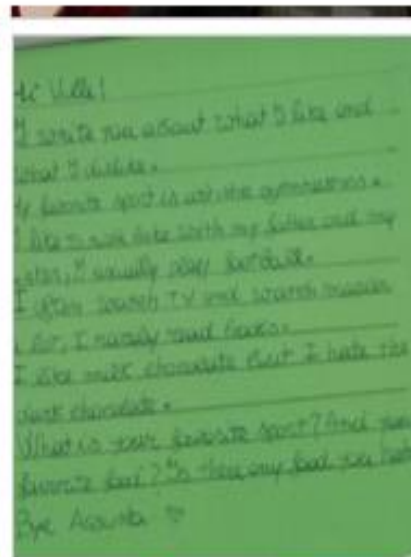 Hi Ville!
I write you about what I like and
what I dislike.
My favorite sport is artistic gymnastics.
I like to ride bike with my father and my
sister, I usually play football.
I often watch TV and watch
a lot, I rarely read books.
I like milk chocolate but I hate the
dark chocolate.
What is your favorite sport? And your
favorite food? Is there any food you hate
Bye